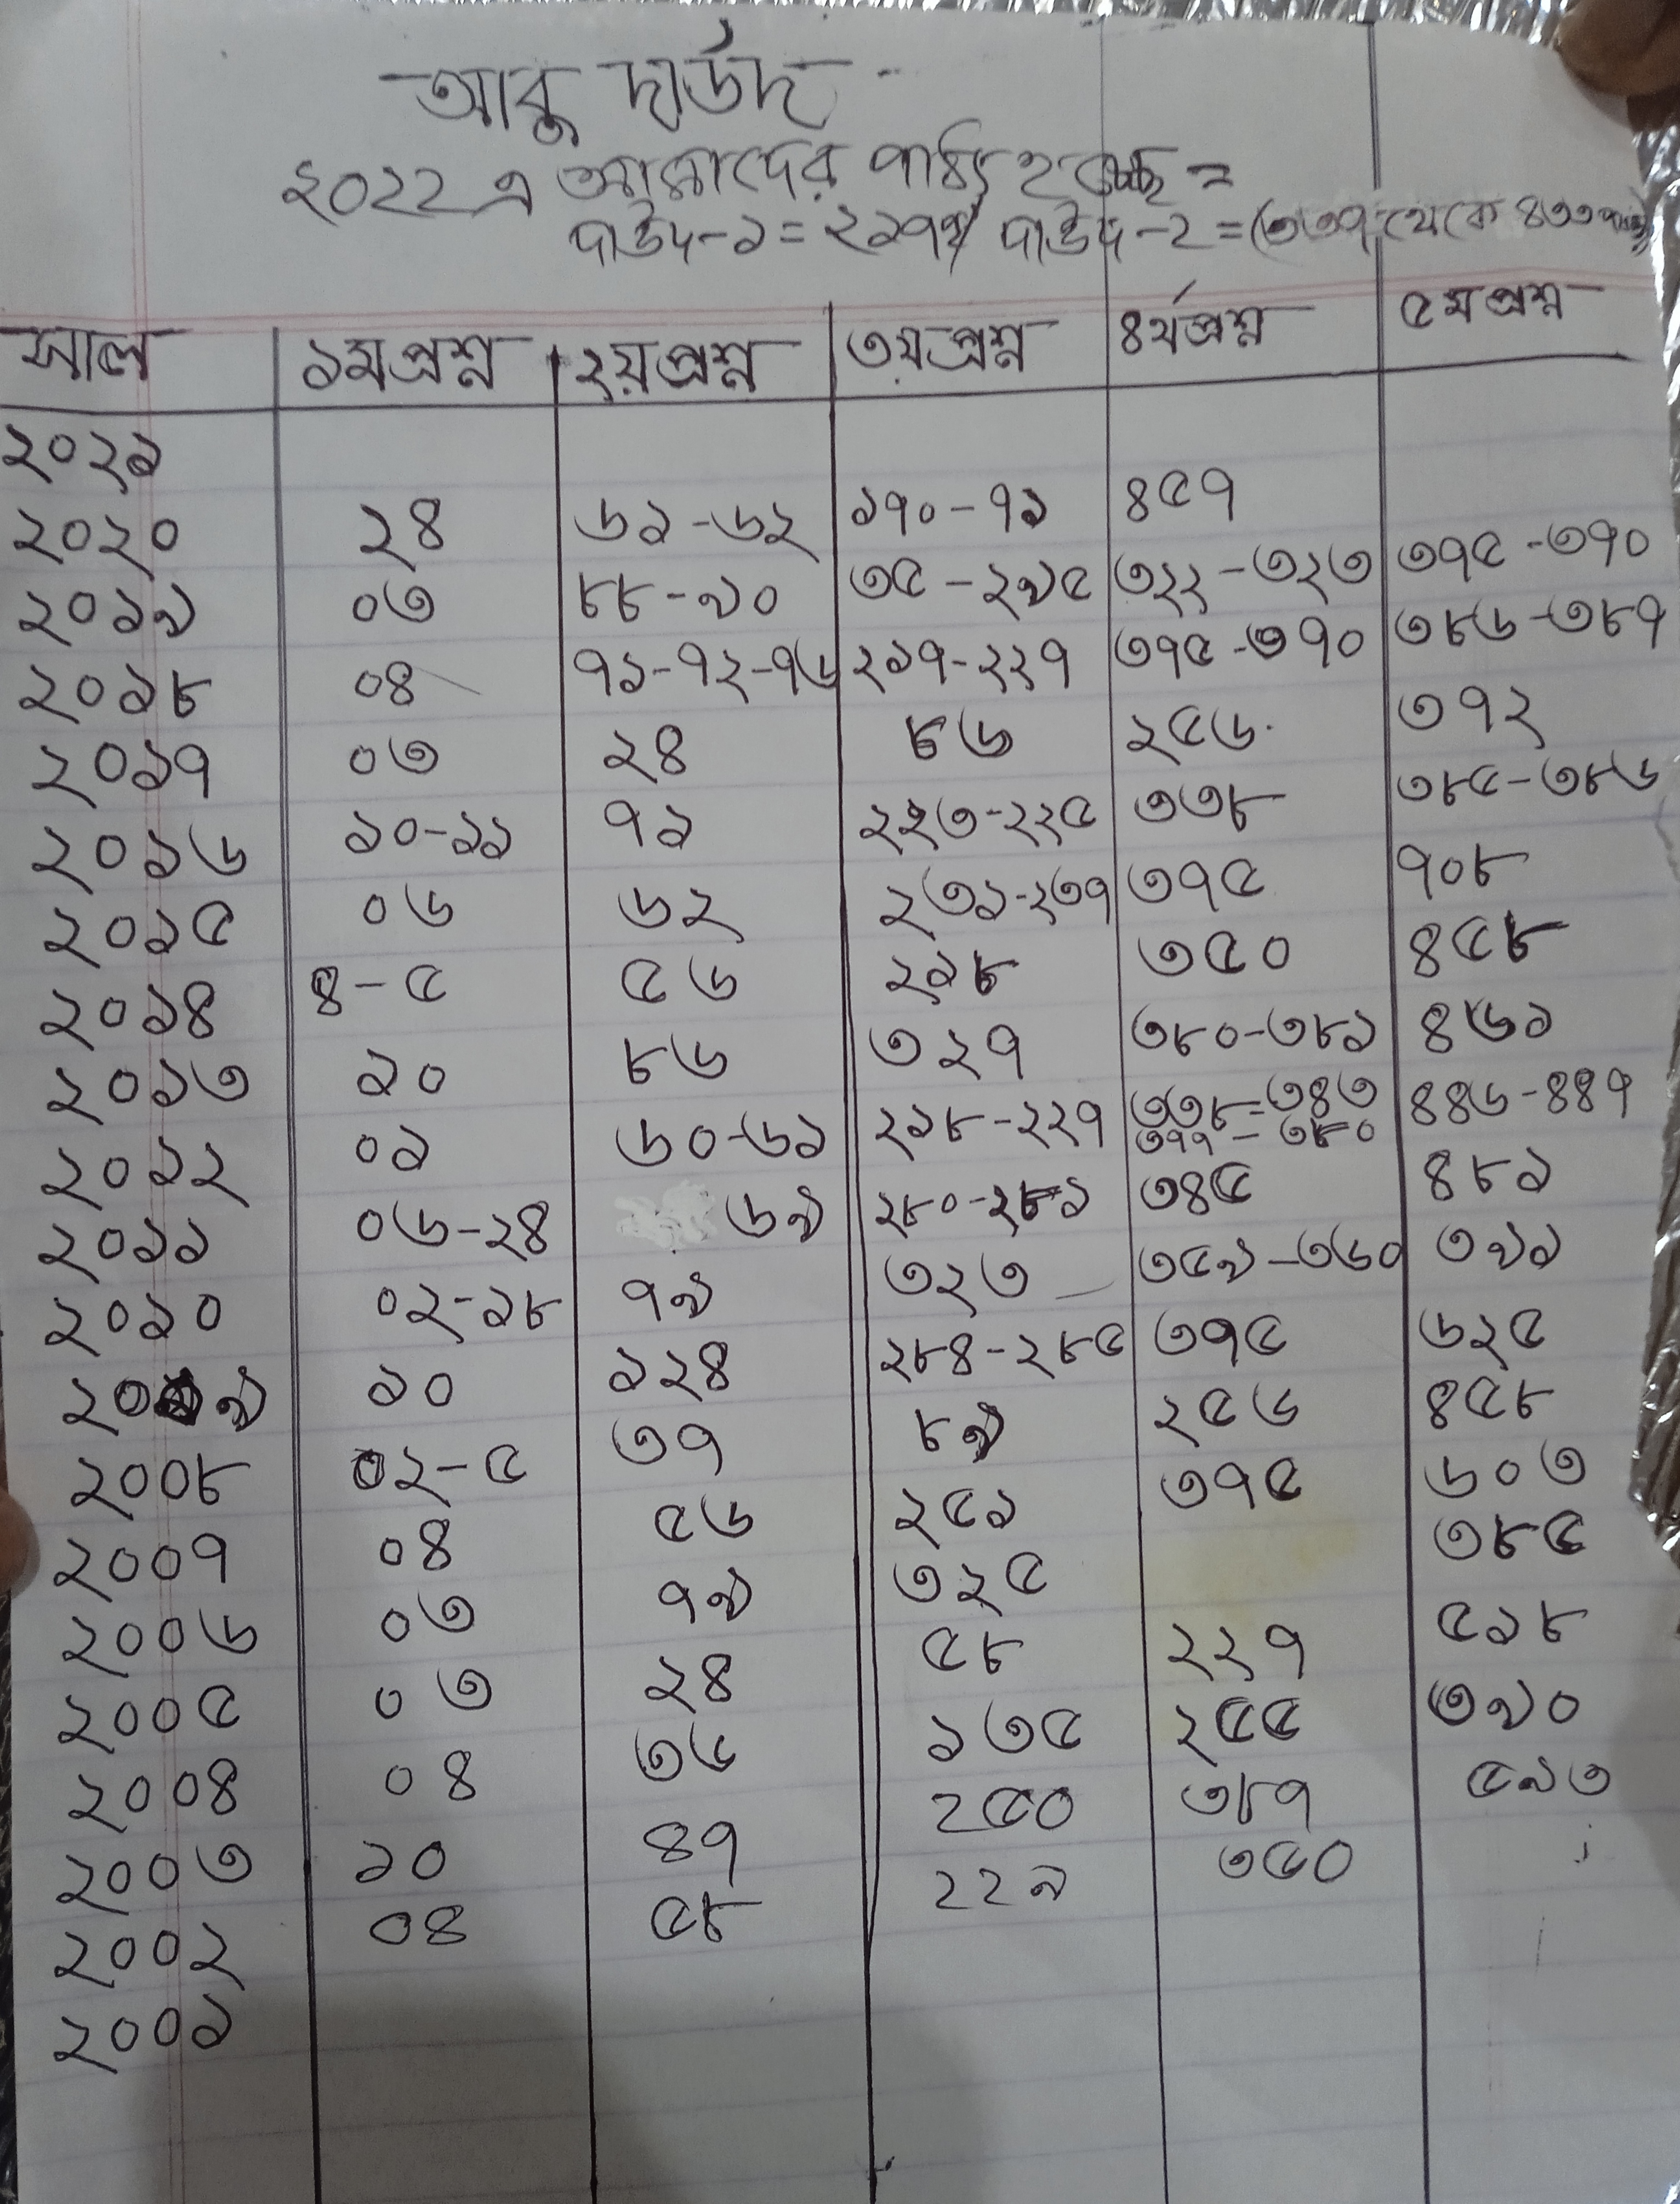 আবু দাউদ
২০২২ এ আমাদের পাঠ্য হচ্ছে =
দাউদ-১ = ২১৭পৃ/ দাউদ-২ = (৩৩৭ থেকে ৪৩৩
সাল ১মপ্রশ্ন ২য়প্রশ্ন ৩য়প্রশ্ন ৪র্থপ্রশ্ন ৫মপ্রশ্ন
২০২১
২০২০ ২৪ ৬১-৬২ ১৭০-৭১ ৪৫৭
২০১৯ ০৩ ৮৮-৯০ ৩৫-২৯৫ ৩২২-৩২৩ ৩৭৫-৩৭০
২০১৮ ০৪ ৭১-৭২-৭৬ ২১৭-২২৭ ৩৭৫-৩৭০ ৩৮৬-৩৮৭
২০১৭ ০৩ ২৪ ৮৬ ২৫৬ ৩৭২
২০১৬ ১০-১১ ৭১ ২২৩-২২৫ ৩৩৮ ৩৮৫-৩৮৬
২০১৫ ০৬ ৬২ ২৩১-২৩৭ ৩৭৫ ৭০৮
২০১৪ ৪-৫ ৫৬ ২১৮ ৩৫০ ৪৫৮
২০১৩ ১০ ৮৬ ৩২৭ ৩৮০-৩৮১ ৪৬১
২০১২ ০১ ৬০-৬১ ২১৮-২২৭ ৩৩৮=৩৪৩ ৪৪৬-৪৪৭
৩৭৭-৩৮০
২০১১ ০৬-২৪ ৬৯ ২৮০-২৮১ ৩৪৫ ৪৮১
২০১০ ০২-১৮ ৭৯ ৩২৩ ৩৫৯-৩৬০ ৩৯১
২০০৯ ১০ ১২৪ ২৮৪-২৮৫ ৩৭৫ ৬২৫
২০০৮ ০২-৫ ৩৭ ৮৯ ২৫৬ ৪৫৮
২০০৭ ০৪ ৫৬ ২৫১ ৩৭৫ ৬০৩
২০০৬ ০৩ ৭৯ ৩২৫ ৩৮৫
২০০৫ ০৩ ২৪ ৫৮ ২২৭ ৫১৮
২০০৪ ০৪ ৩৫ ১৩৫ ২৫৫ ৩৯০
২০০৩ ১০ ৪৭ ২৫০ ৩৮৭ ৫৯৩
২০০২ ০৪ ৫৮ ২২৯ ৩৫০
২০০১